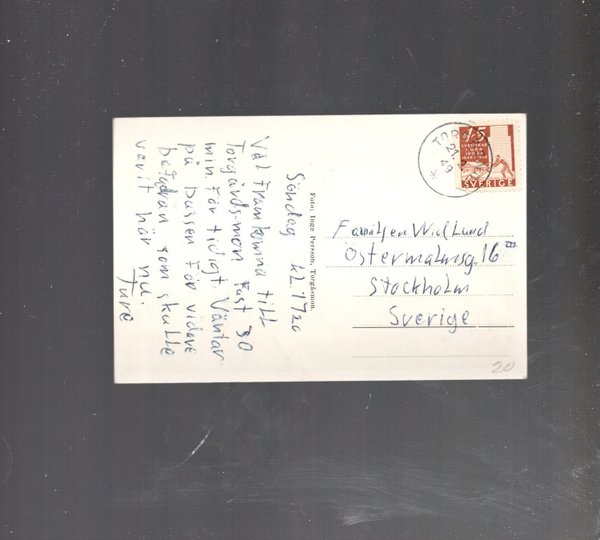 Söndag kl. 1720
Väl framkomna till
Torgårdsmon fast 30
min för tidigt Väntar
på bassen för vidare
som skulle
varit här nu.
Ture
Foto: Inge Persson, Torgåsmon.
Familjen Widlund
Östermalmsg 16
Stockholm
Sverige
15
SVERIGE
TOR
21.
49
20